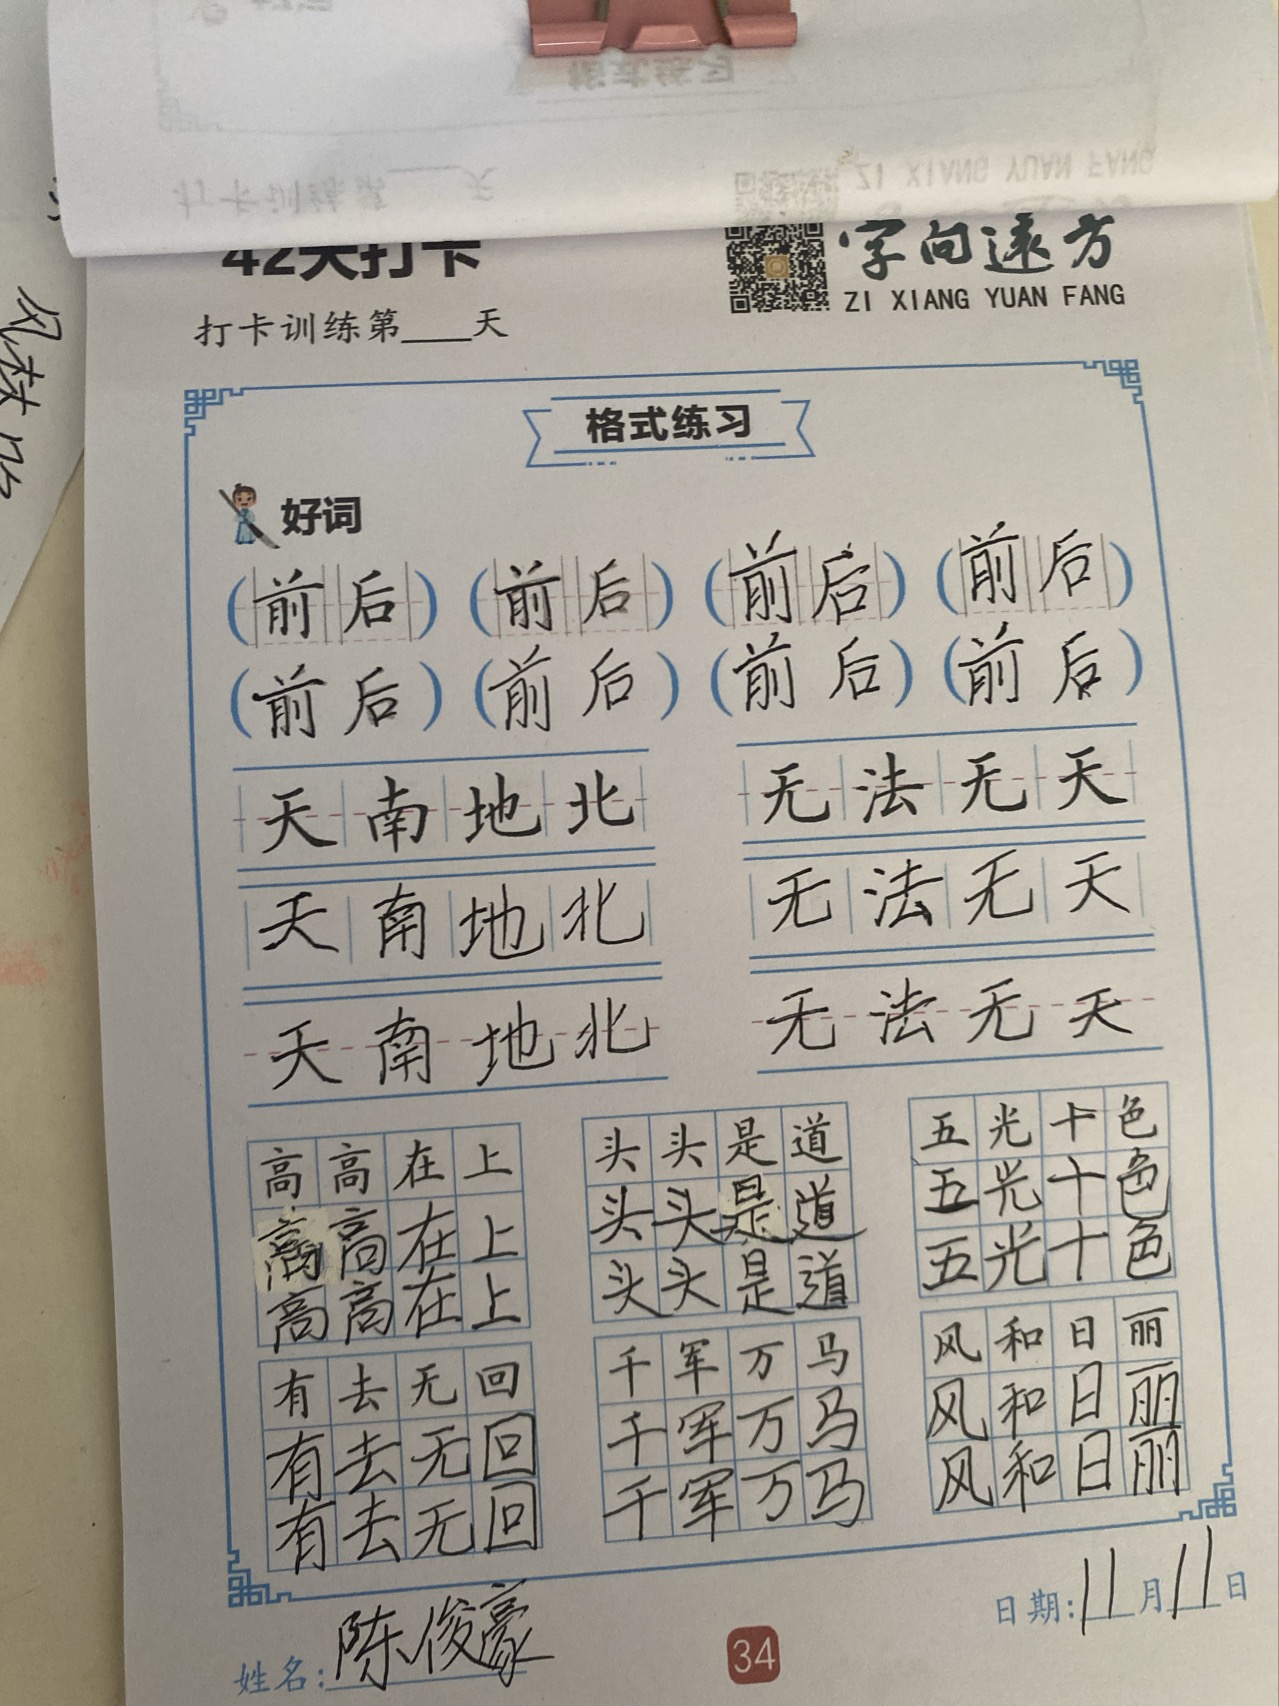 42天打卡
字向远方
ZI XIANG YUAN FANG
打卡训练第___天
格式练习
好词
(前后) (前后) (前后) (前后)
(前后) (前后) (前后) (前后)
天南地北 无法无天
天南地北 无法无天
天南地北 无法无天
高高在上 头头是道 五光十色
高高在上 头头是道 五光十色
高高在上 头头是道 五光十色
有去无回 千军万马 风和日丽
有去无回 千军万马 风和日丽
有去无回 千军万马 风和日丽
姓名:陈俊豪
34
日期:11月11日